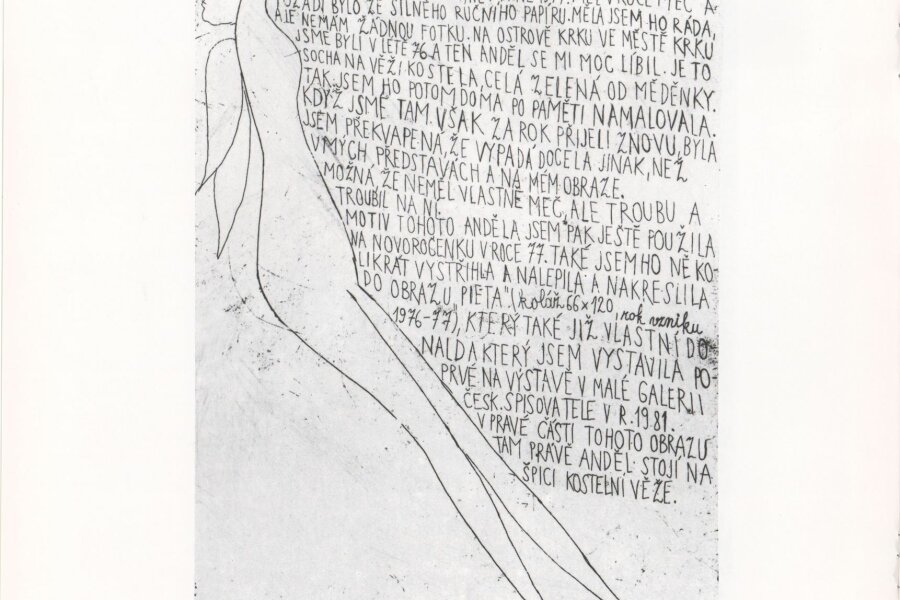 ZADÍ BYLO ZE SILNÉHO RUČNÍHO PAPÍRU. MĚLA JSEM HO RÁDA,
ALE NEMÁM ŽÁDNOU FOTKU. NA OSTROVĚ KRKU VE MĚSTĚ KRKU
JSME BYLI V LÉTĚ 76 A TEN ANDĚL SE MI MOC LÍBIL. JE TO
SOCHA NA VĚŽI KOSTELA, CELÁ ZELENÁ OD MĚDĚNKY.
TAK JSEM HO POTOM DOMA PO PAMĚTI NAMALOVALA.
KDYŽ JSME TAM VŠAK ZA ROK PŘIJELI ZNOVU, BYLA
JSEM PŘEKVAPENÁ, ŽE VYPADÁ DOCELA JINAK, NEŽ
V MÝCH PŘEDSTAVÁCH A NA MÉM OBRAZE.
MOŽNÁ, ŽE NEMĚL VLASTNĚ MEČ, ALE TROUBU A
TROUBIL NA NI.
MOTIV TOHOTO ANDĚLA JSEM PAK JEŠTĚ POUŽILA
NA NOVOROČENKU V ROCE 77. TAKÉ JSEM HO NĚKO-
LIKRÁT VYSTŘIHLA A NALEPILA A NAKRESLILA
DO OBRAZU „PIETA" (koláž 66×120, rok vzniku
1976-77), KTERÝ TAKÉ JIŽ VLASTNÍ DO-
NALD A KTERÝ JSEM VYSTAVILA PO-
PRVÉ NA VÝSTAVĚ V MALÉ GALERII
ČESK. SPISOVATELE V R. 1981.
V PRAVÉ ČÁSTI TOHOTO OBRAZU
TAM PRÁVĚ ANDĚL STOJÍ NA
ŠPICI KOSTELNÍ VĚŽE.